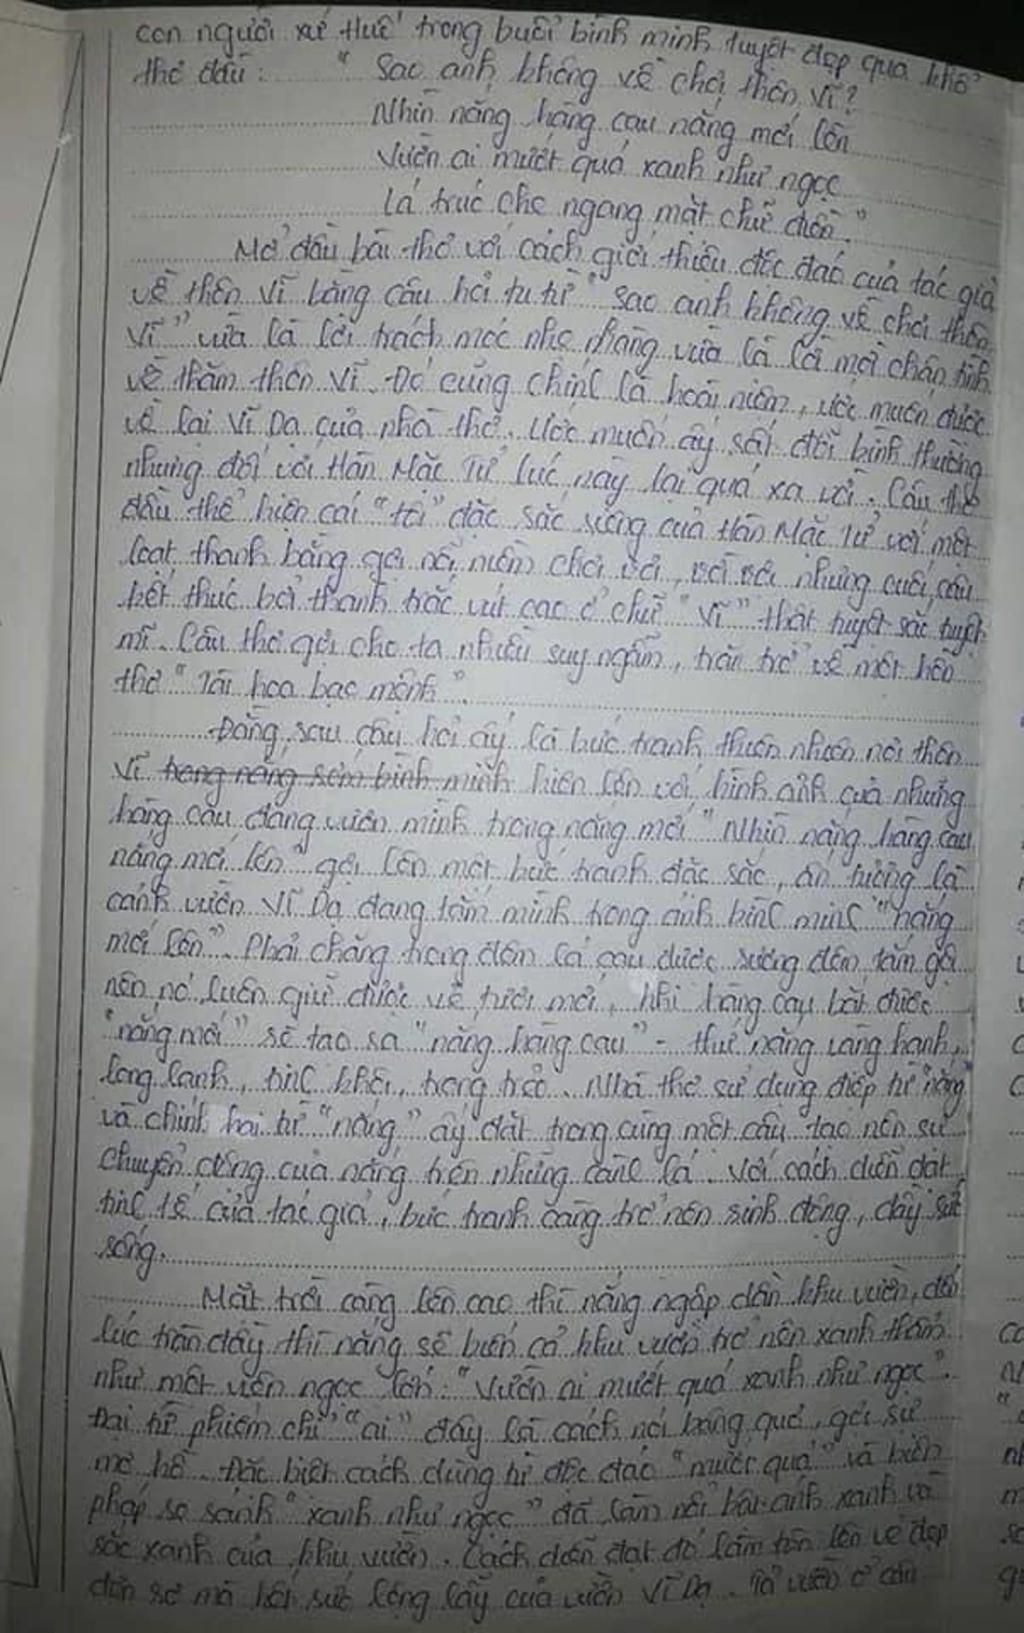 con người xứ Huế trong buổi bình minh tuyệt đẹp qua khổ
thơ đầu: " Sao anh không về chơi thôn Vĩ?
Nhìn nắng hàng cau nắng mới lên
Vườn ai mướt quá xanh như ngọc
Lá trúc che ngang mặt chữ điền."
Mở đầu bài thơ với cách giới thiệu độc đáo của tác giả
về thôn Vĩ bằng câu hỏi tu từ "sao anh không về chơi thôn
Vĩ" vừa là lời trách móc nhẹ nhàng vừa là lời mời chân tình
về thăm thôn Vĩ. Đó cũng chính là hoài niệm, ước muốn được
về lại Vĩ Dạ của nhà thơ. Ước muốn ấy sất đỗi bình thường
nhưng đối với Hàn Mặc Tử lúc này lại quá xa vời. Câu thơ
đầu thể hiện cái "tôi" đặc sắc riêng của Hàn Mặc Tử với một
loạt thanh bằng gợi nỗi niềm chơi vơi, vời vợi nhưng cuối câu
kết thúc bởi thanh trắc vút cao ở chữ "Vĩ" thật tuyệt sắc tuyệt
mĩ. Câu thơ gợi cho ta nhiều suy ngẫm, trăn trở về một hồn
thơ "Tài hoa bạc mệnh".
Đằng sau câu hỏi ấy là bức tranh thiên nhiên nơi thôn
Vĩ trong nắng sớm bình minh hiện lên với hình ảnh của những
hàng cau đang vươn mình trong nắng mới "Nhìn nắng hàng cau
nắng mới lên" gợi lên một bức tranh đặc sắc, ấn tượng là
cảnh vườn Vĩ Dạ đang tắm mình trong ánh bình minh "nắng
mới lên". Phải chăng trong đêm lá cau được sương đêm tắm gội
nên nó luôn giữ được vẻ tươi mới, khi hàng cau bắt được
"nắng mới" sẽ tạo sa "nắng hàng cau" - thứ nắng vàng hanh,
long lanh, tinh khôi, trong trẻo. Nhà thơ sử dụng điệp từ "nắng"
và chính hai từ "nắng" ấy đặt trong cùng một câu tạo nên sự
chuyển động của nắng trên những tàng lá. Với cách diễn đạt
tinh tế của tác giả, bức tranh càng trở nên sinh động, đầy sức
sống.
Mặt trời càng lên cao thì nắng ngập dần khu vườn, đến
lúc tràn đầy thì nắng sẽ biến cả khu vườn trở nên xanh thẳm
như một viên ngọc lớn: "Vườn ai mướt quá xanh như ngọc".
Đại từ phiếm chỉ "ai" đây là cách nói bâng quơ, gợi sự
mơ hồ. Đặc biệt cách dùng từ độc đáo "mướt quá" và biện
pháp so sánh "xanh như ngọc" đã làm nổi bật ánh xanh và
sắc xanh của khu vườn. Cách diễn đạt đó làm tôn lên vẻ đẹp
đơn sơ mà hết sức lộng lẫy của vườn Vĩ Dạ. Tả vườn ở